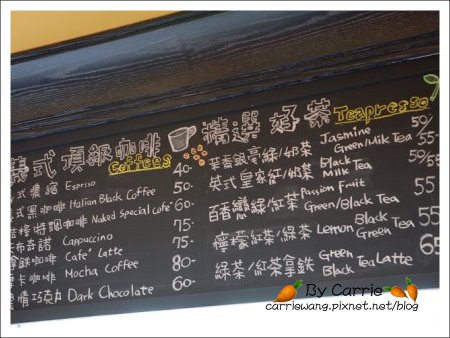 義式頂級咖啡 Coffees
式濃縮 Espresso 40-
式黑咖啡 Italian Black Coffee 50-
特調咖啡 Naked Special Cafe' 60-
布奇諾 Cappuccino 75-
鐵咖啡 Cafe' Latte 75-
卡咖啡 Mocha Coffee 80-
情巧克力 Dark Chocolate 60-
精選好茶 Teapresso
綠/奶茶 Jasmine Green/Milk Tea 50/55-
英式皇家紅/奶茶 Black Milk Tea 50/55-
百香戀綠/紅茶 Passion Fruit Green/Black Tea 55
檸檬紅茶/綠茶 Lemon Black Green Tea 55
綠茶/紅茶拿鐵 Green Black Tea Latte 65
By Carrie
carriewang.pixnet.net/blog